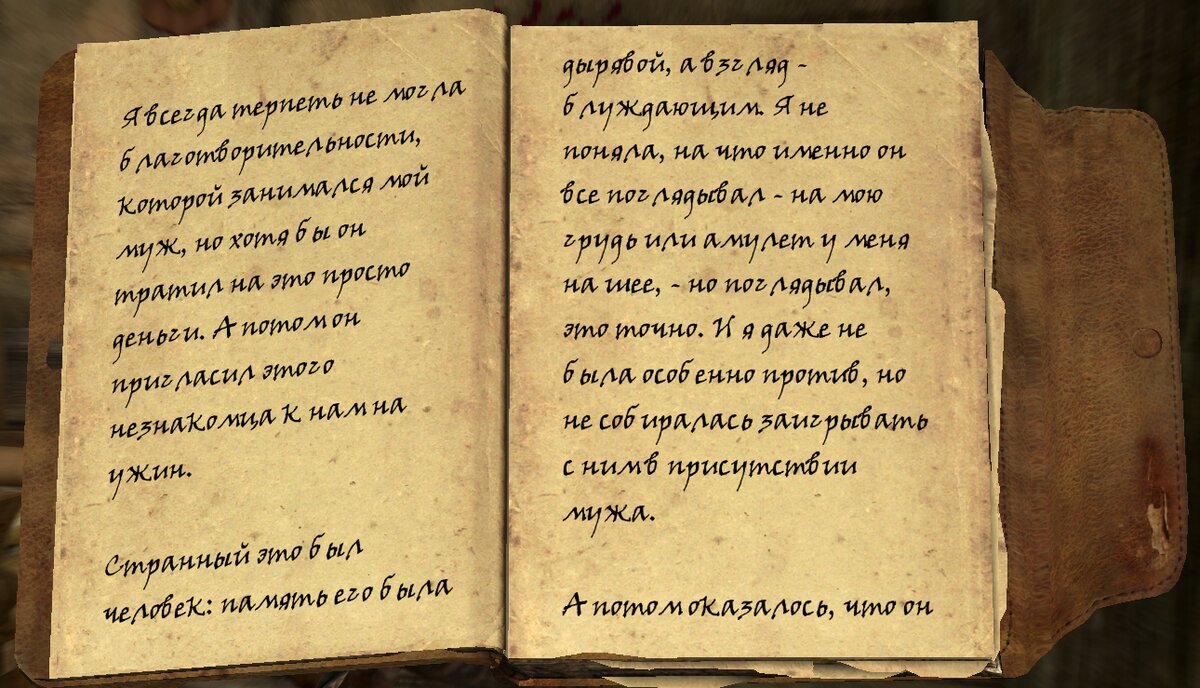 Я всегда терпеть не могла
благотворительности,
которой занимался мой
муж, но хотя бы он
тратил на это просто
деньги. А потом он
пригласил этого
незнакомца к нам на
ужин.
Странный это был
человек: память его была
дырявой, а взгляд -
блуждающим. Я не
поняла, на что именно он
все поглядывал - на мою
грудь или амулет у меня
на шее, - но поглядывал,
это точно. И я даже не
была особенно против, но
не собиралась заигрывать
с ним в присутствии
мужа.
А потом оказалось, что он